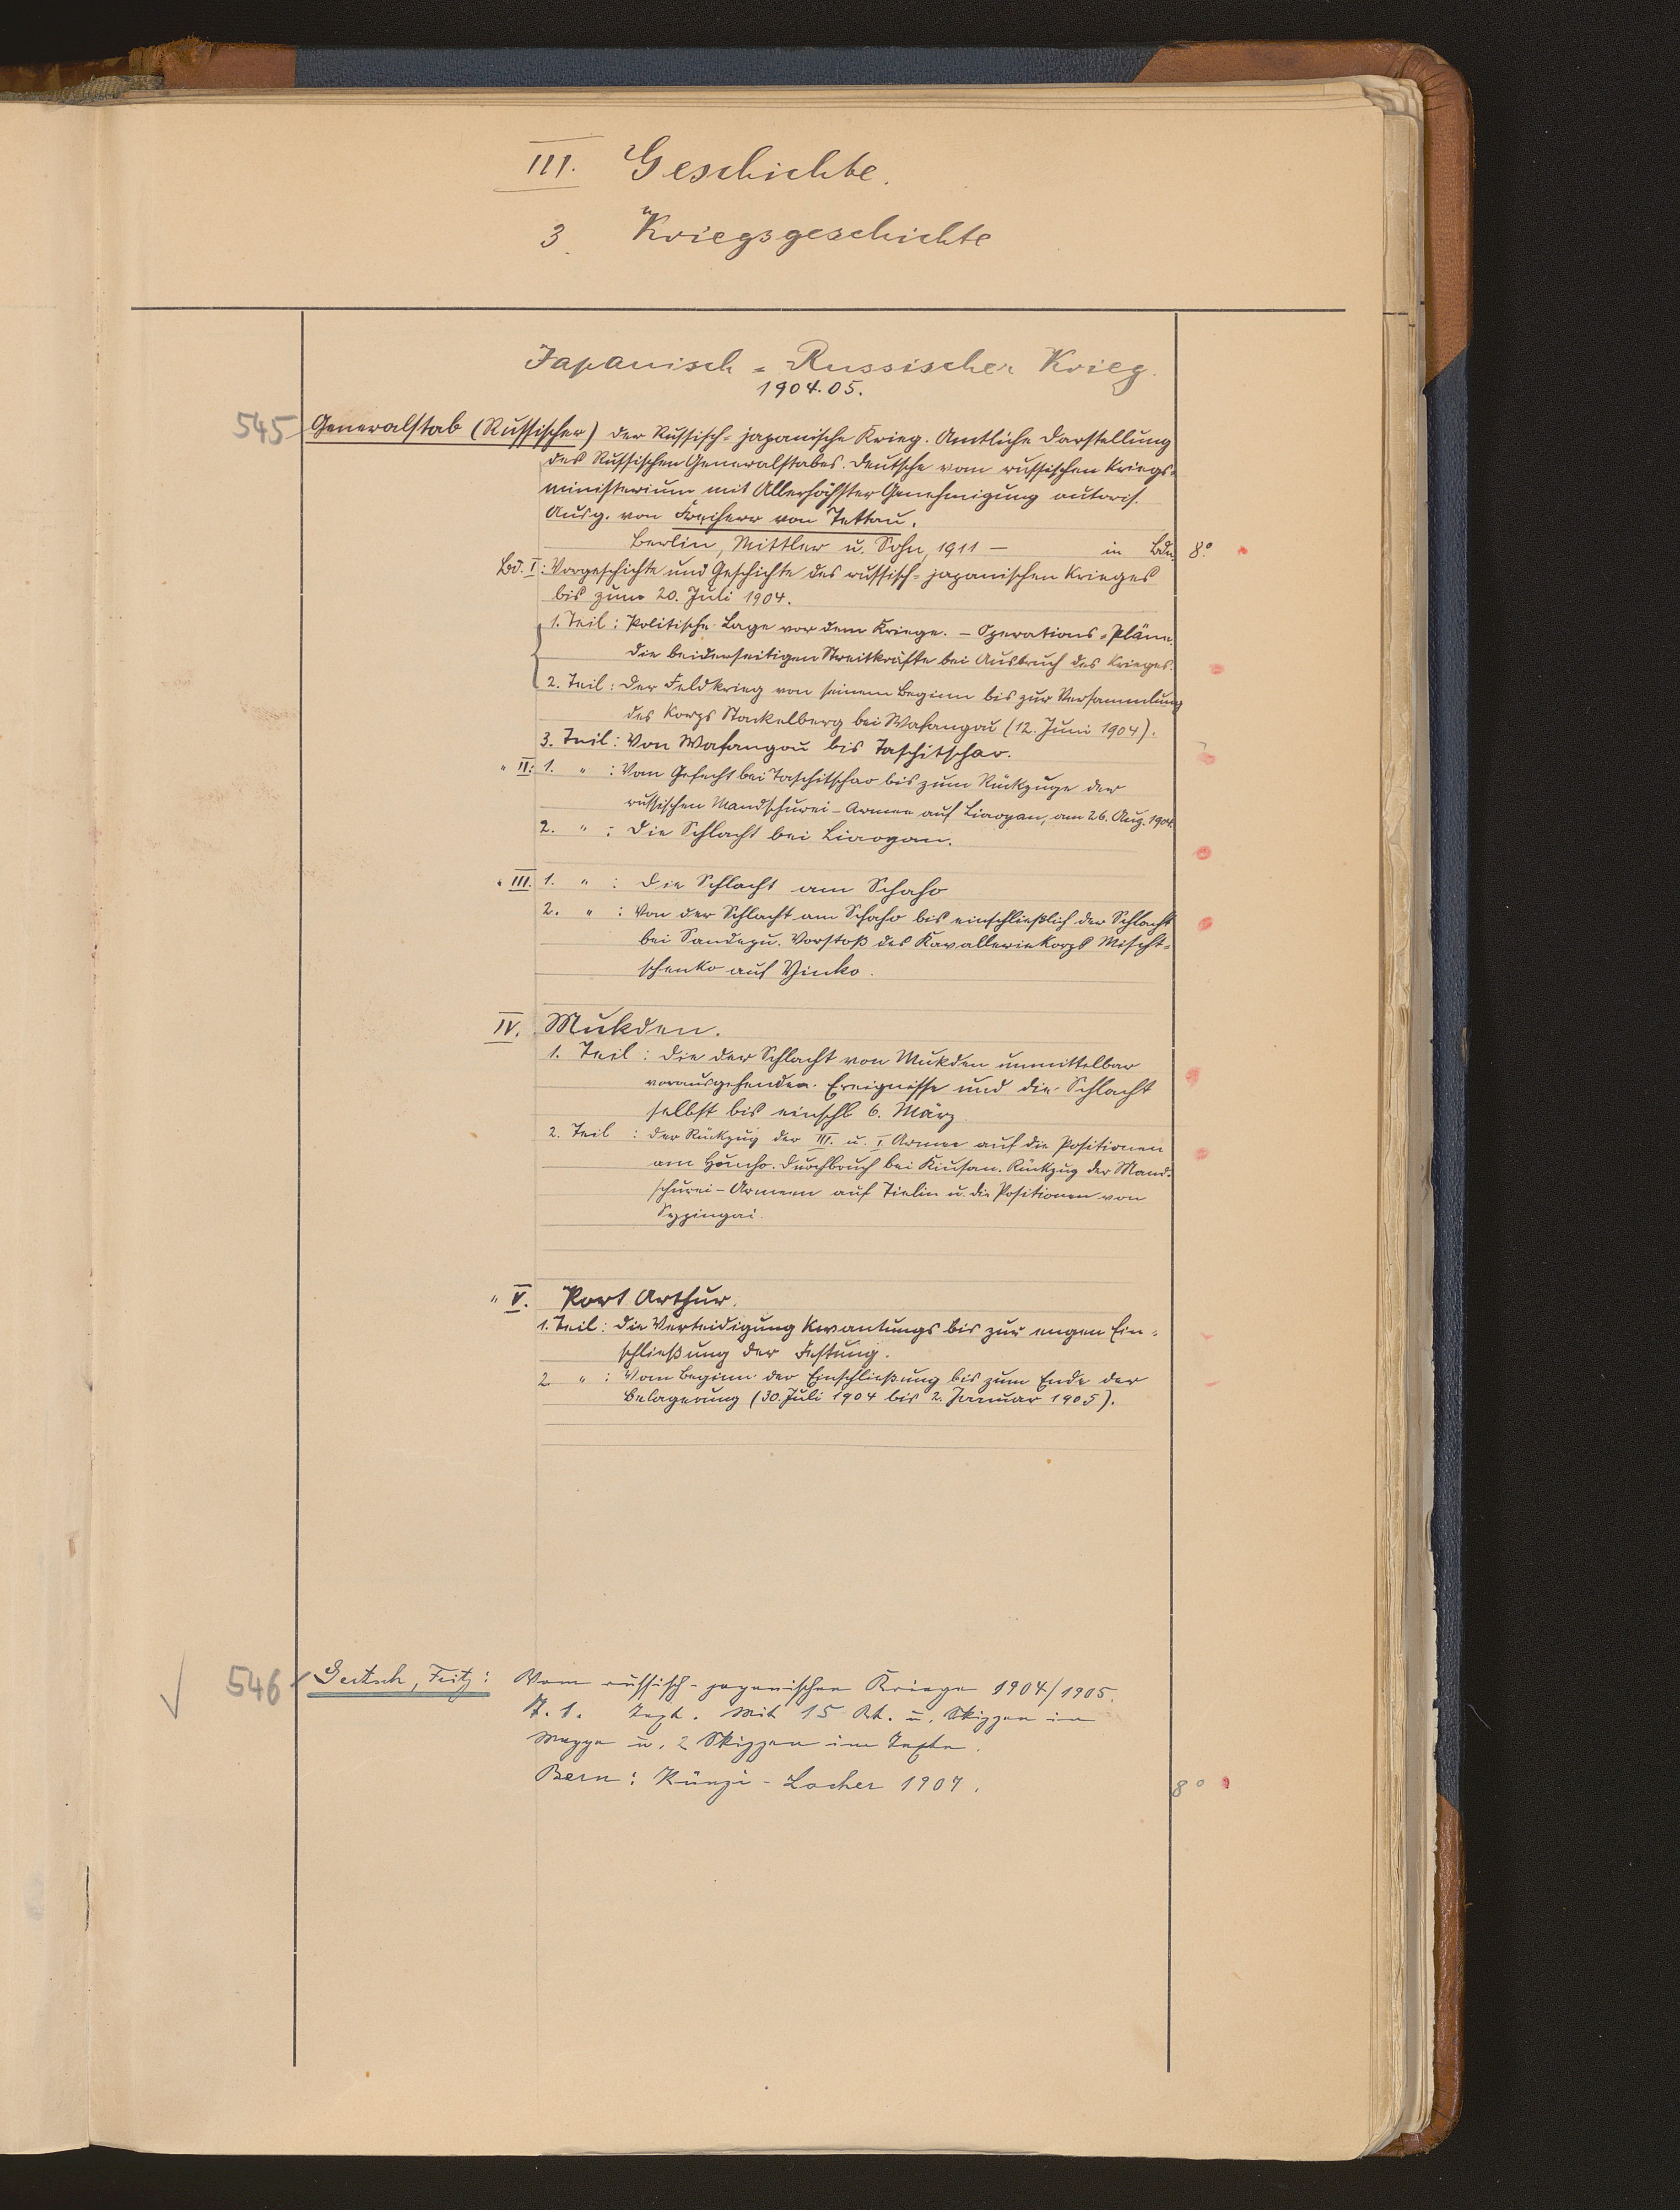 III. Geschichte.
3. Kriegsgeschichte
Japanisch-Russischer Krieg.
1904.05.
545 Generalstab (Russischer) Der Russisch-japanische Krieg. Amtliche Darstellung
des Russischen Generalstabes. Deutsche vom russischen Kriegs-
ministerium mit Allerhöchster Genehmigung autoris.
Ausg. von Freiherr von Tettau.
Berlin, Mittler u. Sohn, 1911 — in Bdn. 8°.
Bd. I: Vorgeschichte und Geschichte des russisch-japanischen Krieges
bis zum 20. Juli 1904.
1. Teil: Politische Lage vor dem Kriege. – Operations-Pläne.
Die beiderseitigen Streitkräfte bei Ausbruch des Krieges.
2. Teil: Der Feldkrieg von seinem Beginn bis zur Versammlung
des Korps Stackelberg bei Wafangou (12. Juni 1904).
3. Teil: Von Wafangou bis Taschitschao.
" II: 1. " : Vom Gefecht bei Taschitschao bis zum Rückzuge der
russischen Mandschurei-Armee auf Liaoyan, am 26. Aug. 1904.
2. " : Die Schlacht bei Liaoyan.
" III. 1. " : Die Schlacht am Schaho
2. " : Von der Schlacht am Schaho bis einschließlich der Schlacht
bei Sandepu. Vorstoß des Kavalleriekorps Mischt-
schenko auf Yinko.
IV. Mukden.
1. Teil: Die der Schlacht von Mukden unmittelbar
vorausgehenden Ereignisse und die Schlacht
selbst bis einschl 6. März
2. Teil : Der Rückzug der III. u. I Armee auf die Positionen
am Hunho. Durchbruch bei Kiusan. Rückzug der Mand-
schurei-Armeen auf Tielin u. die Positionen von
Sypingai.
" V. Port Arthur.
1. Teil: Die Verteidigung Kwantungs bis zur engen Ein-
schließung der Festung.
2. " : Vom Beginn der Einschließung bis zum Ende der
Belagerung (30. Juli 1904 bis 2. Januar 1905).
546 Gertsch, Fritz: Vom russisch-japanischen Kriege 1904/1905.
T. 1. Text. Mit 15 Kt. u. Skizzen in
Mappe u. 2 Skizzen im Texte.
Bern: Künzi-Locher 1907. 8°